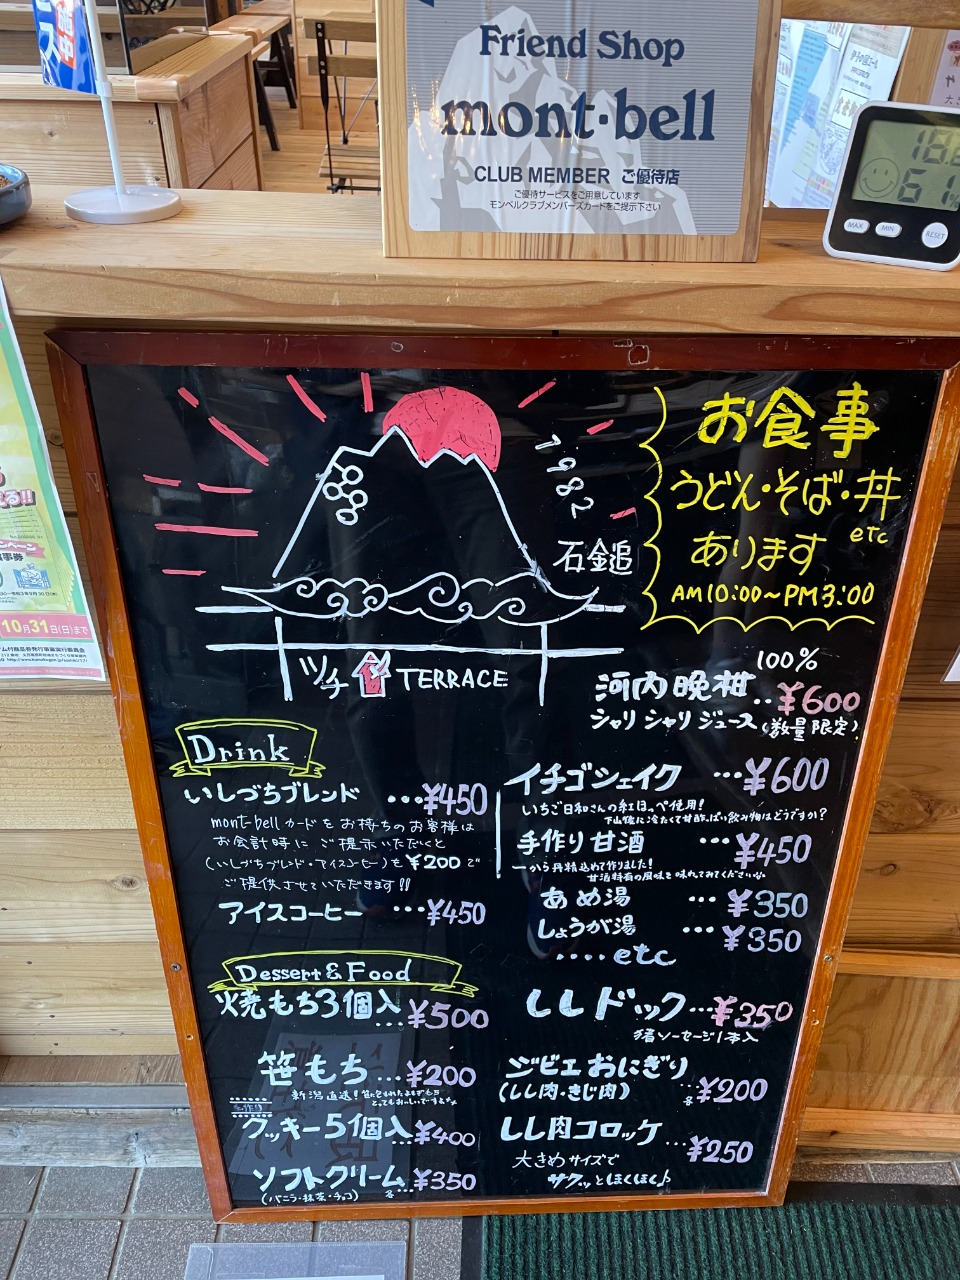 Friend Shop
mont·bell
CLUB MEMBER ご優待店
ご優待サービスをご用意しています
モンベルクラブメンバーズカードをご提示下さい
MAX
MIN
RESET
61%
10月31日(日)まで
1982
石金追
ツチ TERRACE
お食事
うどん・そば・丼
etc
あります
AM10:00~PM3:00
100%
河内晩柑
シャリシャリジュース(数量限定) ..¥600
Drink
いしづちブレンド ...¥450
mont-bellカードをお持ちのお客様は
お会計時にご提示いただくと
(いしづちブレンド・アイスコーヒー)を¥200で
ご提供させていただきます!!
アイスコーヒー ...¥450
イチゴシェイク ...¥600
いちご日和さんの紅ほっぺ使用!
下山後に冷たくて甘酸っぱい飲み物はどうですか?
手作り甘酒 ...¥450
一から丹精込めて作りました!
甘酒特有の風味を味わってみてください
あめ湯 ...¥350
しょうが湯 ...¥350
....etc
Dessert&Food
焼もち3個入 ...¥500
笹もち...¥200
新潟直送!笹に包まれたよもぎもち
とってもおいしいですよ
手作り
クッキー5個入...¥400
ソフトクリーム 各...¥350
(バニラ・抹茶・チョコ)
ししドック...¥350
猪ソーセージ1本入
ジビエおにぎり
(しし肉・きじ肉) 各...¥200
しし肉コロッケ ...¥250
大きめサイズで
サクッとほくほく♪